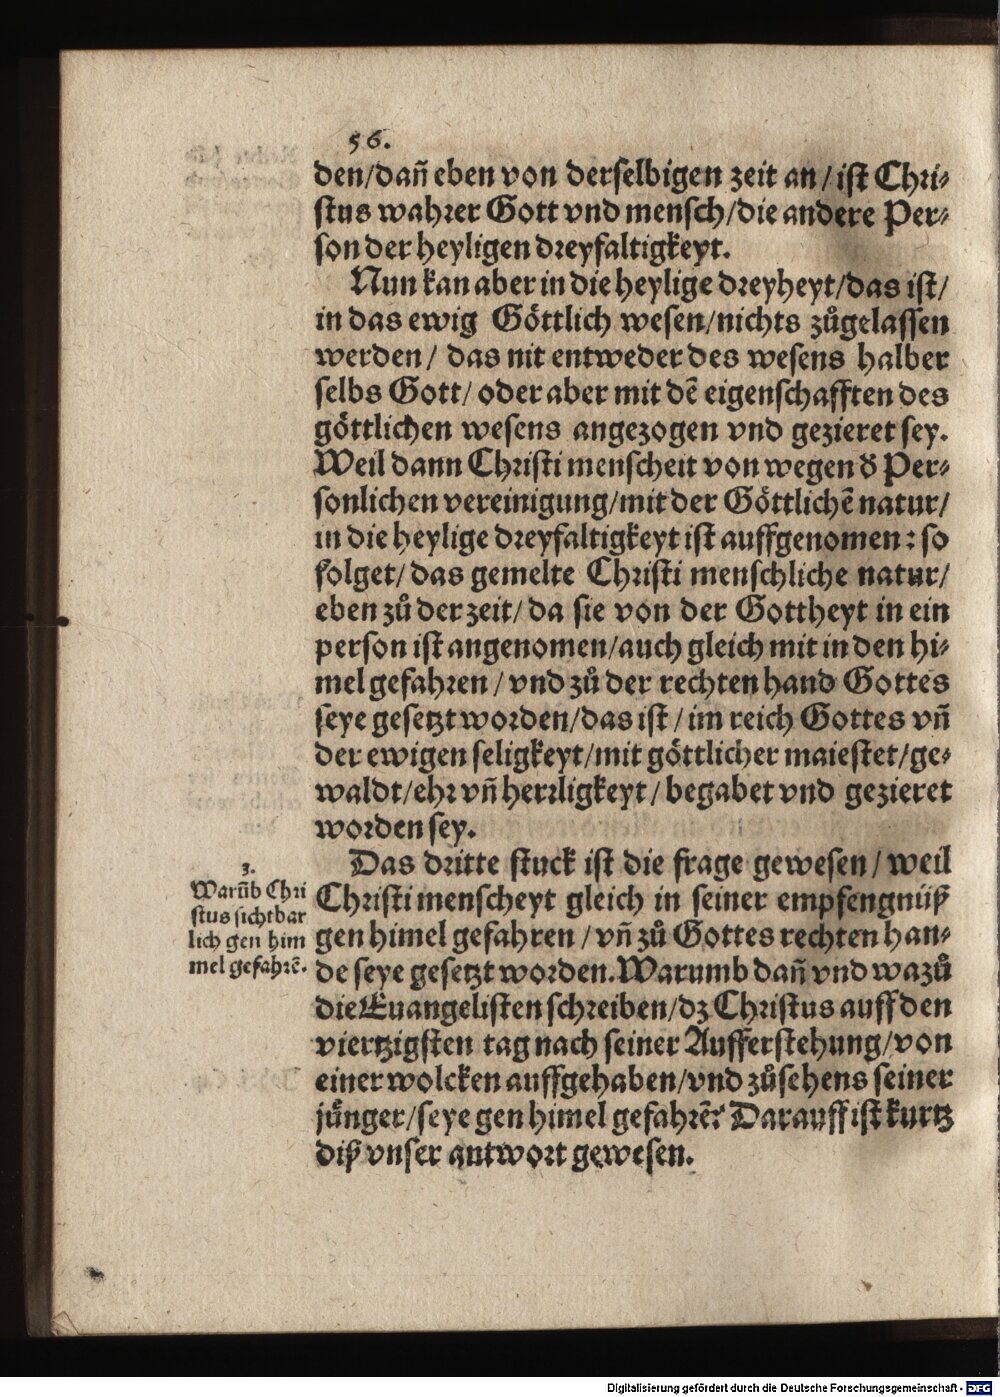 56.
den/dañ eben von derselbigen zeit an/ist Chri⸗
stus wahrer Gott vnd mensch/die andere Per⸗
son der heyligen dreyfaltigkeyt.
Nun kan aber in die heylige dreyheyt/das ist/
in das ewig Göttlich wesen/nichts zůgelassen
werden/ das nit entweder des wesens halber
selbs Gott/ oder aber mit dẽ eigenschafften des
göttlichen wesens angezogen vnd gezieret sey.
Weil dann Christi menscheit von wegen d̕ Per⸗
sonlichen vereinigung/mit der Göttlichẽ natur/
in die heylige dreyfaltigkeyt ist auffgenomen: so
folget/das gemelte Christi menschliche natur/
eben zů der zeit/da sie von der Gottheyt in ein
person ist angenomen/auch gleich mit in den hi⸗
mel gefahren/vnd zů der rechten hand Gottes
seye gesetzt worden/das ist/im reich Gottes vñ
der ewigen seligkeyt/mit göttlicher maiestet/ge⸗
waldt/ehr vñ herrligkeyt/begabet vnd gezieret
worden sey.
Das dritte stuck ist die frage gewesen/weil
Christi menscheyt gleich in seiner empfengnüß
gen himel gefahren/vñ zů Gottes rechten han⸗
de seye gesetzt worden. Warumb dañ vnd wazů
die Euangelisten schreiben/dz Christus auff den
viertzigsten tag nach seiner Aufferstehung/von
einer wolcken auffgehaben/vnd zůsehens seiner
jünger/seye gen himel gefahrẽ? Darauff ist kurtz
diß vnser antwort gewesen.
3.
Warũb Chri
stus sichtbar
lich gen him
mel gefahrẽ.
Digitalisierung gefördert durch die Deutsche Forschungsgemeinschaft - DFG